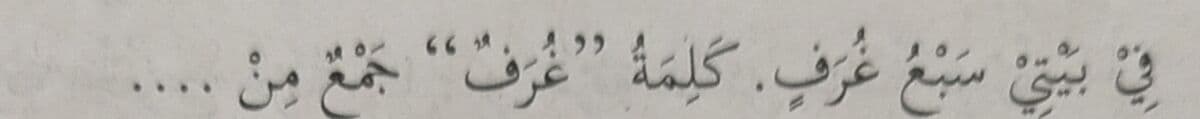 فِيْ بَيْتِيْ سَبْعُ غُرَفٍ. كَلِمَةُ ”غُرَفٌ“ جَمْعٌ مِنْ ....